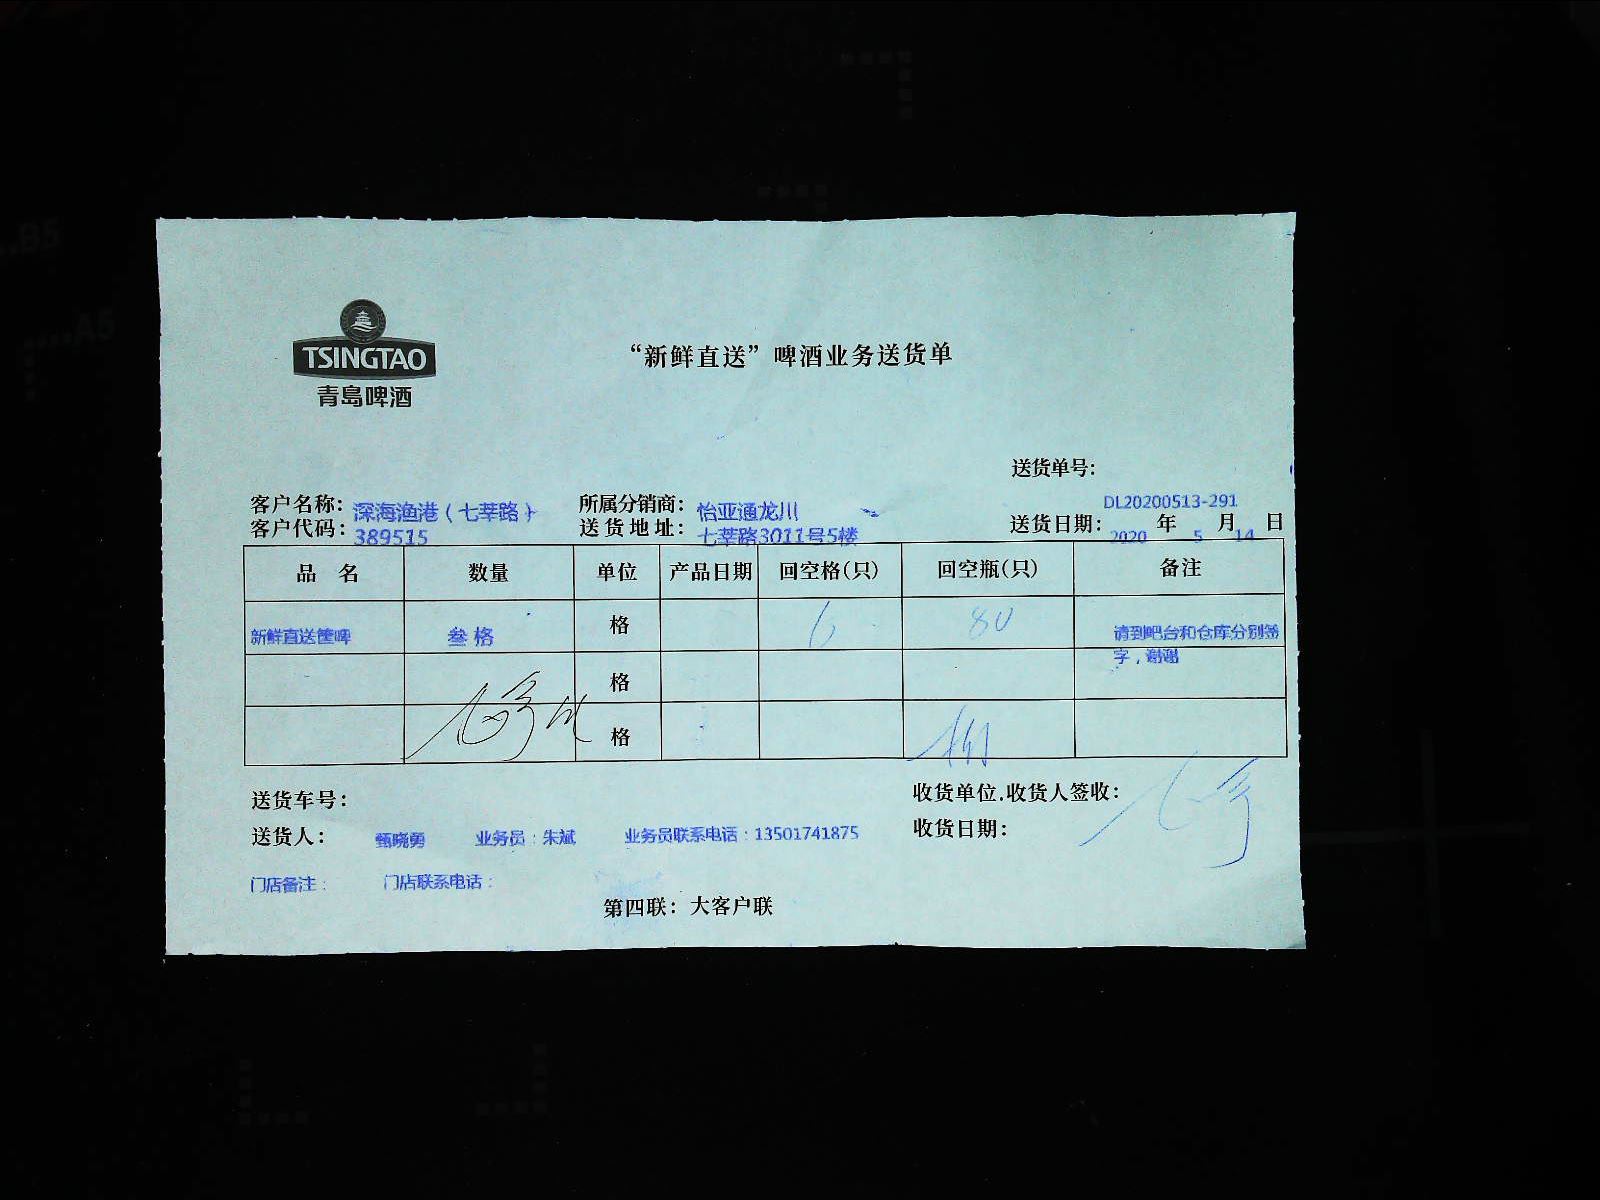 TSINGTAO
青島啤酒
“新鲜直送”啤酒业务送货单
送货单号：
DL20200513-291
客户名称：深海渔港（七莘路） 所属分销商：怡亚通龙川
客户代码：389515 送货地址：七莘路3011号5楼 送货日期：2020 年 5 月 14 日
品 名 数量 单位 产品日期 回空格(只) 回空瓶(只) 备注
新鲜直送筐啤 叁格 格 6 80 请到吧台和仓库分别签
字，谢谢
格
格
送货车号： 收货单位.收货人签收：
送货人： 甄晓勇 业务员：朱斌 业务员联系电话：13501741875 收货日期：
门店备注： 门店联系电话：
第四联：大客户联